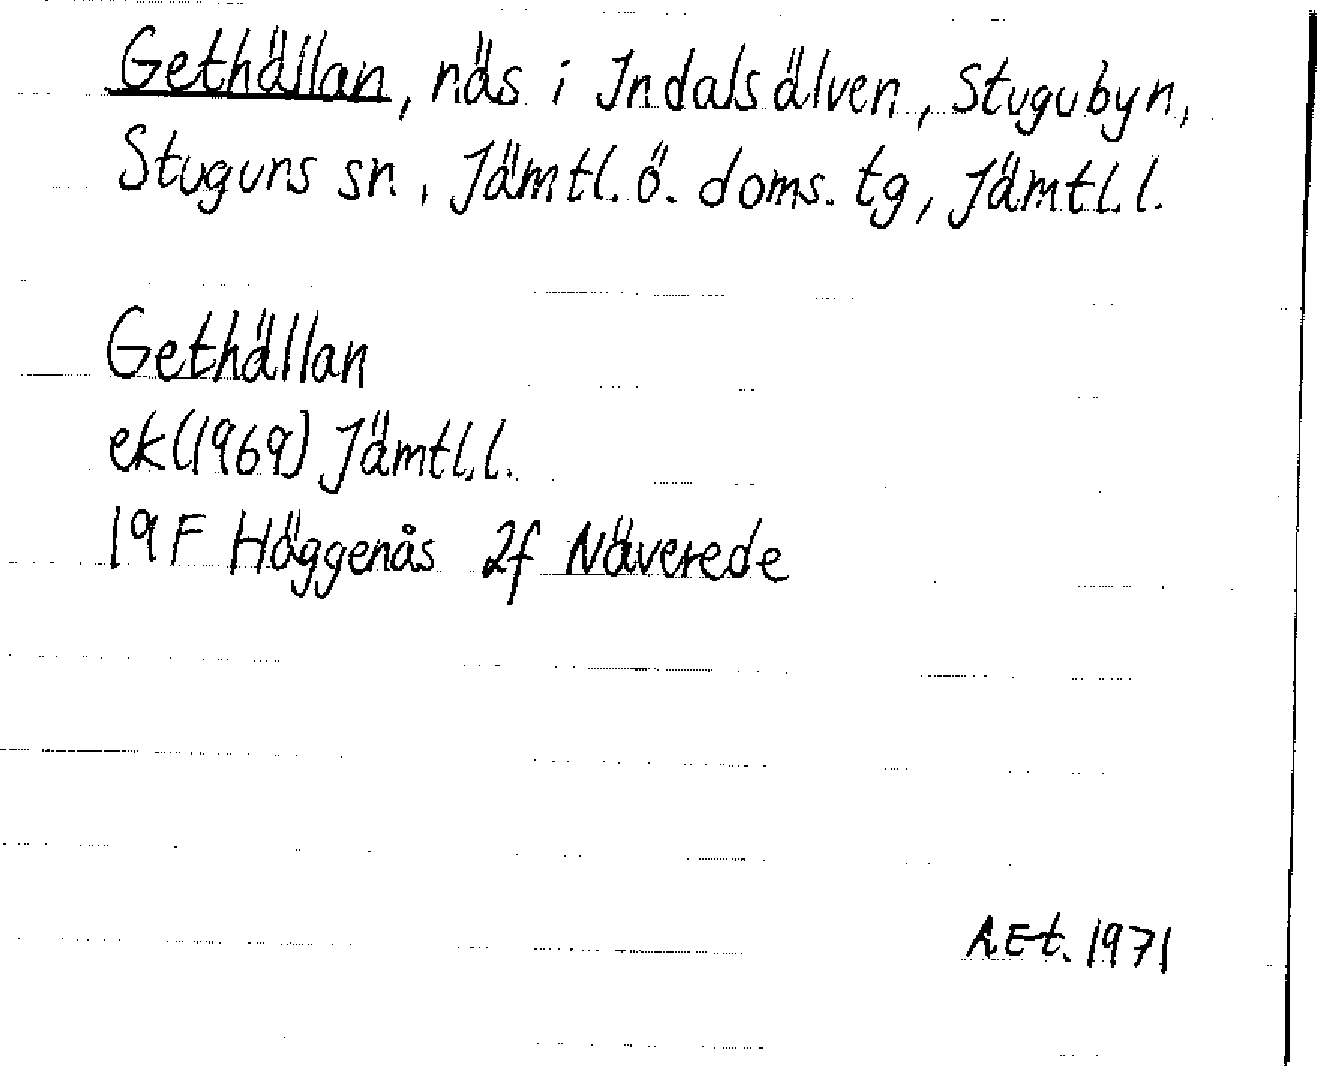 Gethällan, näs i Indalsälven, Stugubyn,
Stuguns sn, Jämtl. ö. doms. tg, Jämtl. l.
Gethällan
ek (1969) Jämtl. l.
19 F Häggenås 2f Näverede
A Et. 1971